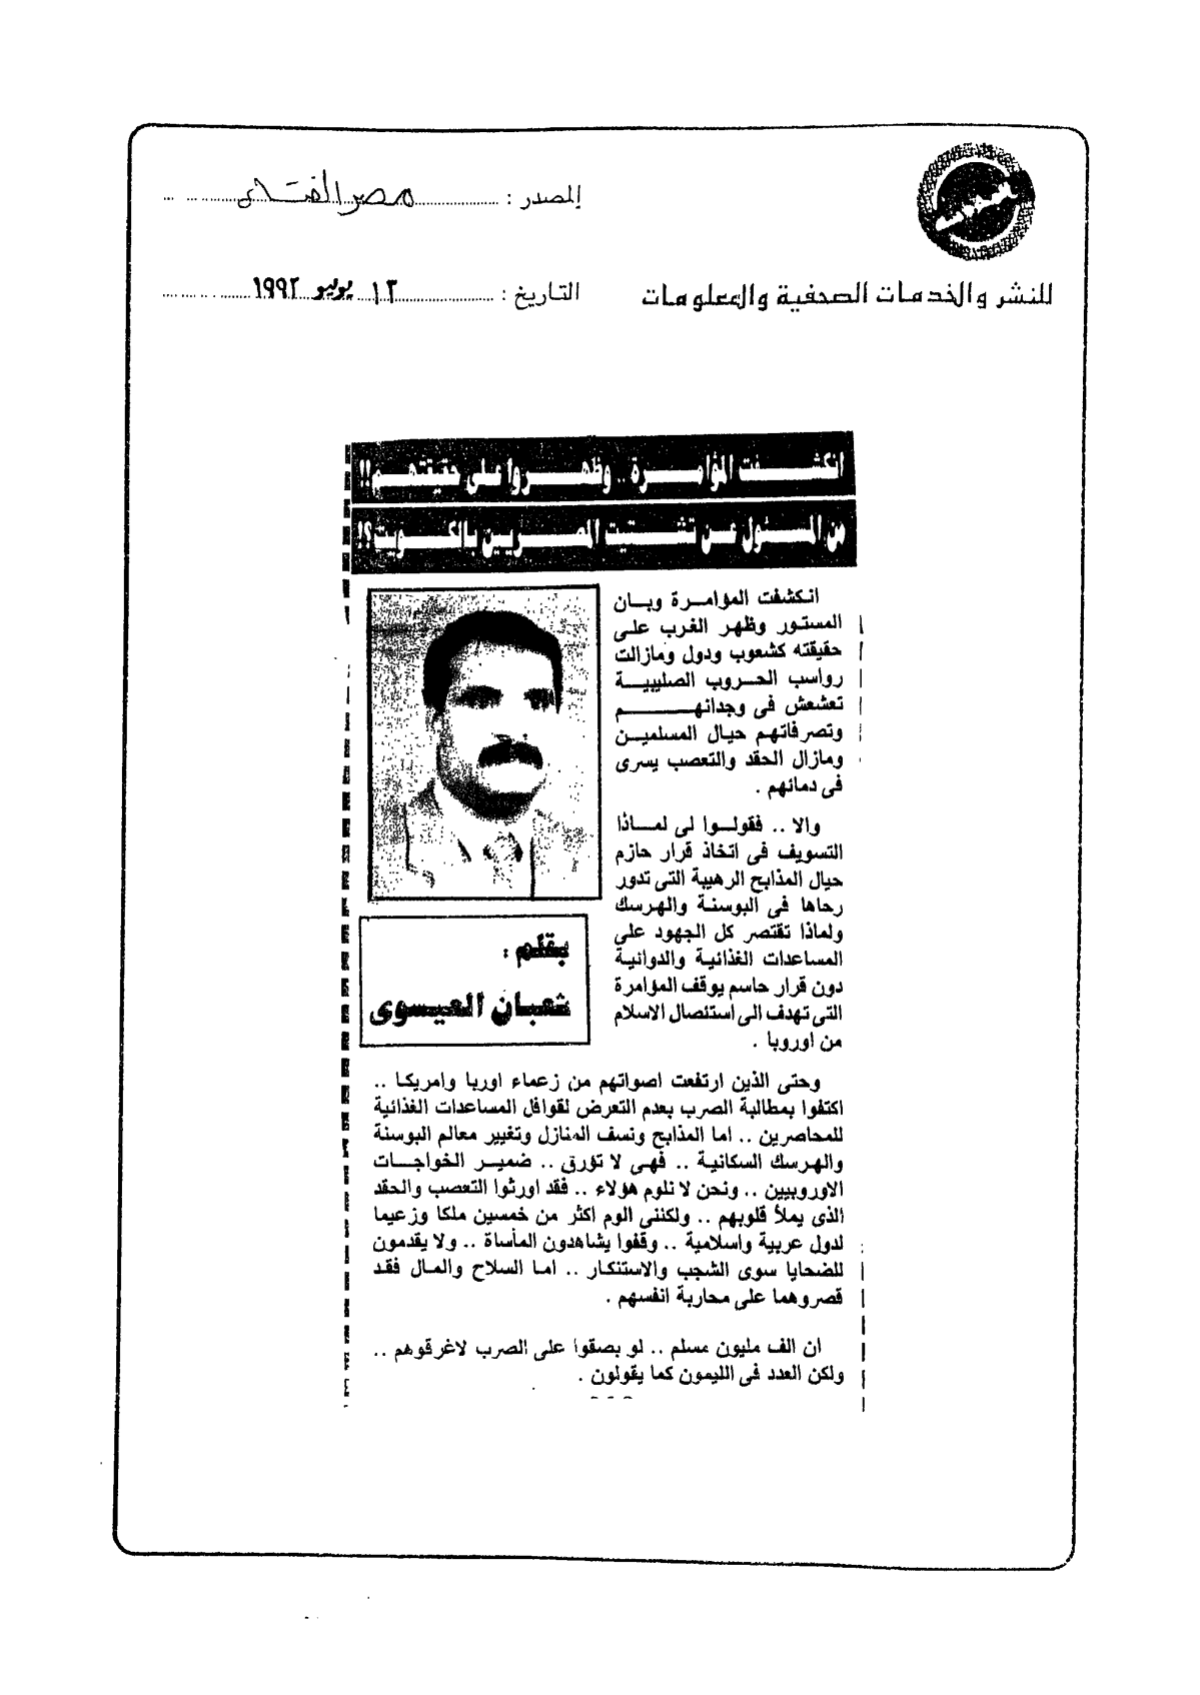 المصدر : مصر الفتاة
للنشر والخدمات الصحفية والمعلومات
التاريخ : ١٢ يونيو ١٩٩٢
انكشفت المؤامرة .. وظهروا على حقيقتهم !!
من المسئول عن تشتيت المصريين بالكويت ؟!
انكشفت المؤامرة وبان
المستور وظهر الغرب على
حقيقته كشعوب ودول ومازالت
رواسب الحروب الصليبية
تعشعش فى وجدانهم
وتصرفاتهم حيال المسلمين
ومازال الحقد والتعصب يسرى
فى دمائهم .
والا .. فقولوا لى لماذا
التسويف فى اتخاذ قرار حازم
حيال المذابح الرهيبة التى تدور
رحاها فى البوسنة والهرسك
ولماذا تقتصر كل الجهود على
المساعدات الغذائية والدوائية
دون قرار حاسم يوقف المؤامرة
التى تهدف الى استئصال الاسلام
من اوروبا .
بقلم :
شعبان العيسوى
وحتى الذين ارتفعت اصواتهم من زعماء اوربا وامريكا ..
اكتفوا بمطالبة الصرب بعدم التعرض لقوافل المساعدات الغذائية
للمحاصرين .. اما المذابح ونسف المنازل وتغيير معالم البوسنة
والهرسك السكانية .. فهى لا تؤرق .. ضمير الخواجات
الاوروبيين .. ونحن لا نلوم هؤلاء .. فقد اورثوا التعصب والحقد
الذى يملأ قلوبهم .. ولكننى الوم اكثر من خمسين ملكا وزعيما
لدول عربية واسلامية .. وقفوا يشاهدون المأساة .. ولا يقدمون
للضحايا سوى الشجب والاستنكار .. اما السلاح والمال فقد
قصروهما على محاربة انفسهم .
ان الف مليون مسلم .. لو بصقوا على الصرب لاغرقوهم ..
ولكن العدد فى الليمون كما يقولون .